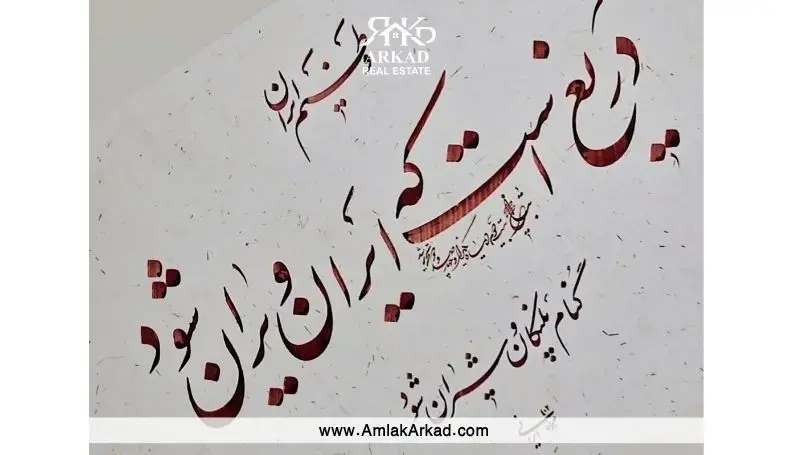 ARKAD
REAL ESTATE
ایران
دریغ است که ایران ویران شود
کنام پلنگان و شیران شود
www.AmlakArkad.com